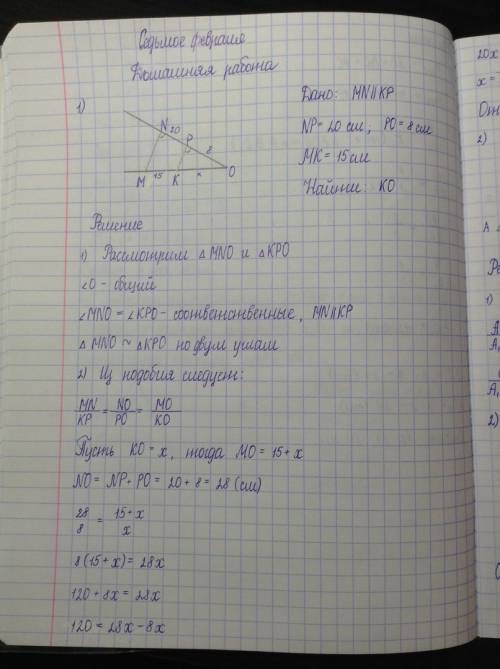 Седьмое февраля
Домашняя работа
1)
N 20
P
8
M 15 K x O
Дано: MN∥KP
NP = 20 см, PO = 8 см
MK = 15 см
Найти: KO
Решение
1) Рассмотрим △MNO и △KPO
∠O - общий
∠MNO = ∠KPO - соответственные, MN∥KP
△MNO ~ △KPO по двум углам
2) Из подобия следует:
MN/KP = NO/PO = MO/KO
Пусть KO = x, тогда MO = 15 + x
NO = NP + PO = 20 + 8 = 28 (см)
28/8 = 15 + x/x
8(15 + x) = 28x
120 + 8x = 28x
120 = 28x - 8x
20x
x =
От
2)
A
Ре
1)
A
A₁
A₁
2)